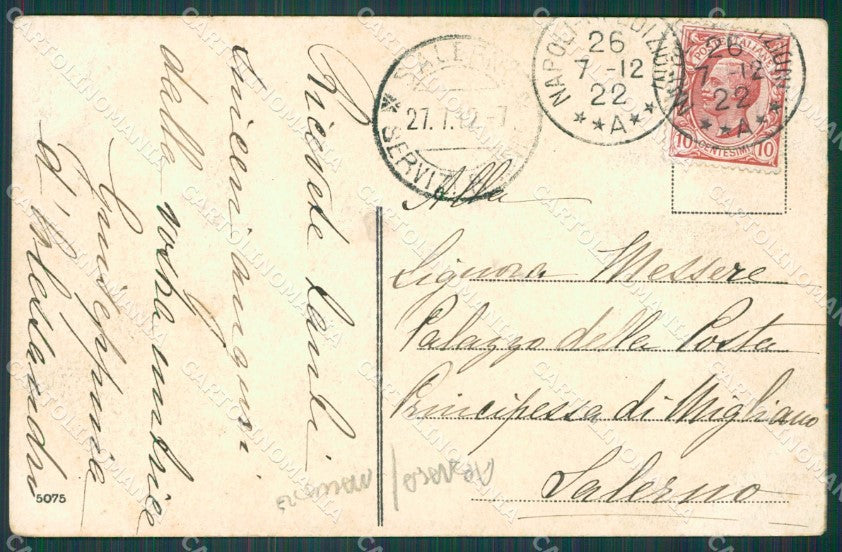 Ricevete tanti
sinceri auguri
della vostra amica
Giuseppina
d'Alessandro
5075
SALERNO
27.7.12.-7
SERVIZI
NAPOLI
26
7-12
22
A
26
7-12
22
A
POSTE ITALIANE
10 CENTESIMI 10
Alla
Signora Messere
Palazzo della Posta
Principessa di Migliano
Salerno
CARTOLINOMANIA